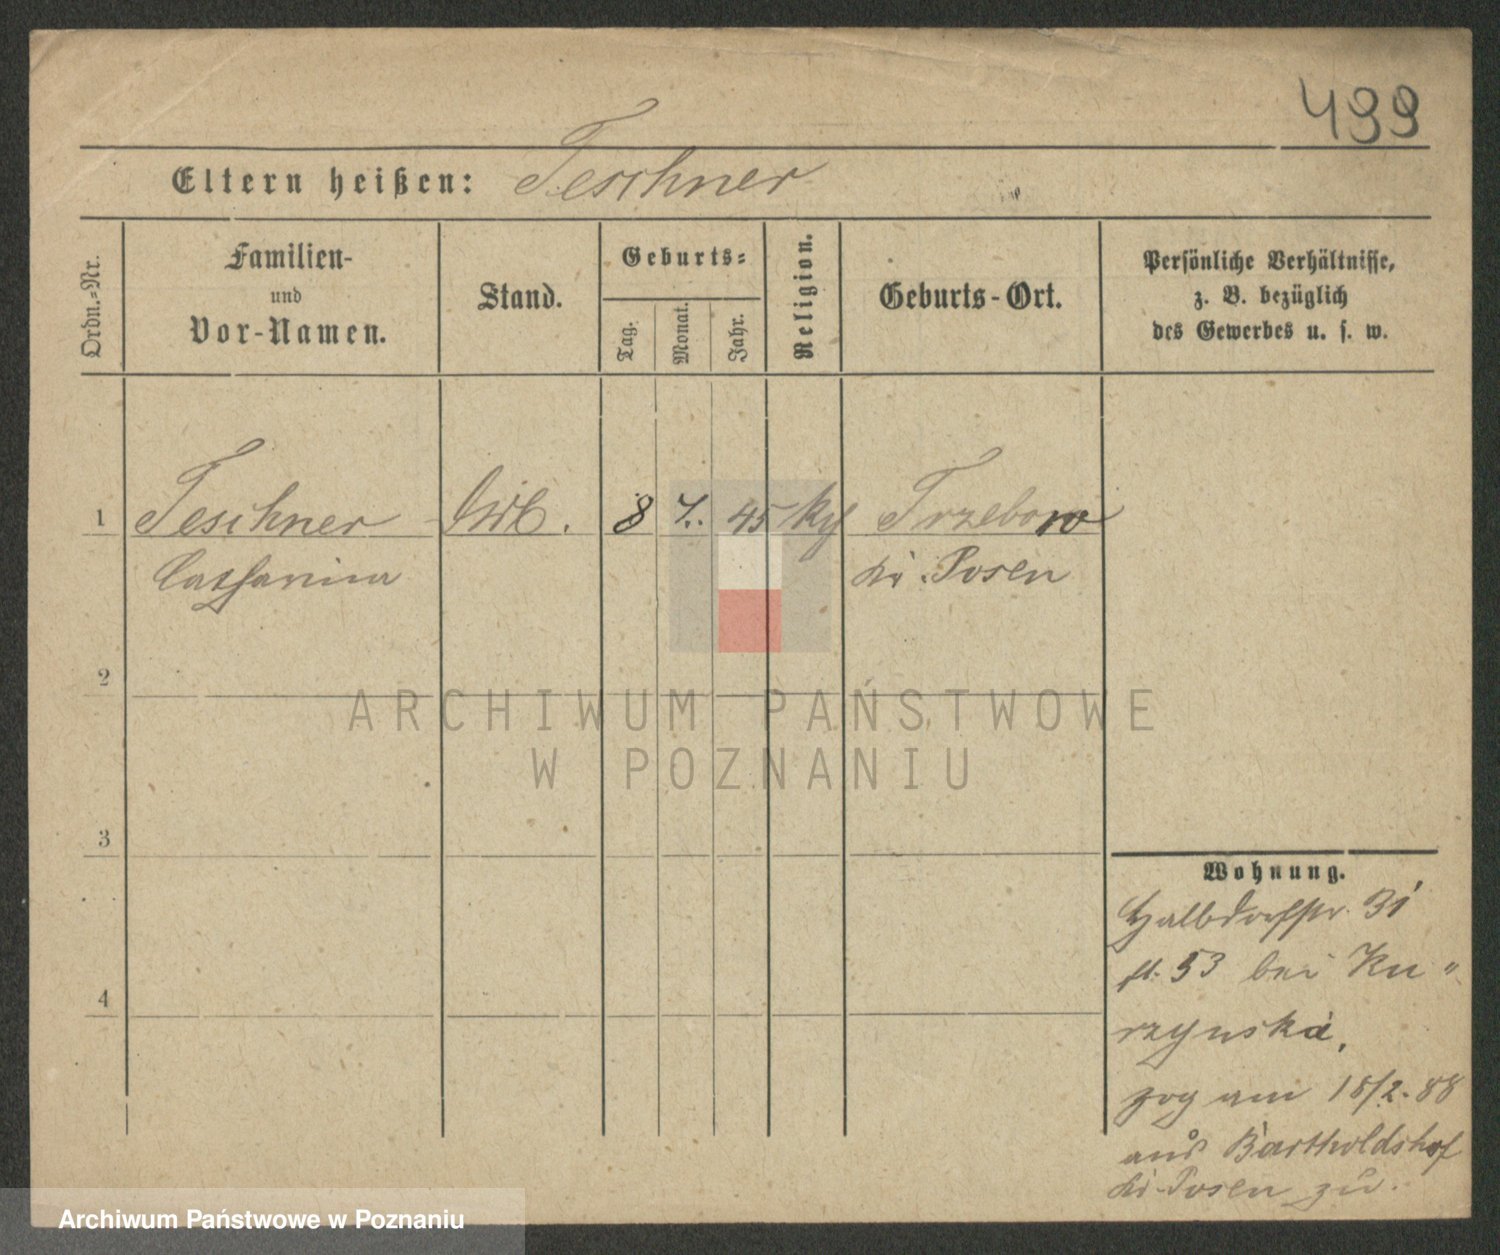 499
Eltern heißen: Teschner
Ordn.-Nr.
Familien-
und
Vor-Namen.
Stand.
Geburts-
Tag.
Monat.
Jahr.
Religion.
Geburts-Ort.
Persönliche Verhältnisse,
z. B. bezüglich
des Gewerbes u. s. w.
1 Teschner 8 7. 45 kg Trzebow
Catharina Kr. Posen
2
3
4
Wohnung.
Halbdorfstr. 31
53 bei Ku"
rzynska,
zog am 18/2. 88
aus Bartholdshof
Kr. Posen zu.
ARCHIWUM PAŃSTWOWE
W POZNANIU
Archiwum Państwowe w Poznaniu